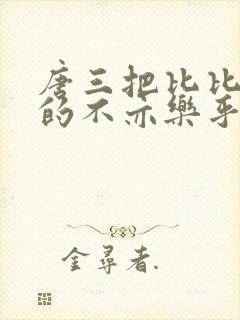 唐三把比比
的不亦樂乎
金尋者.